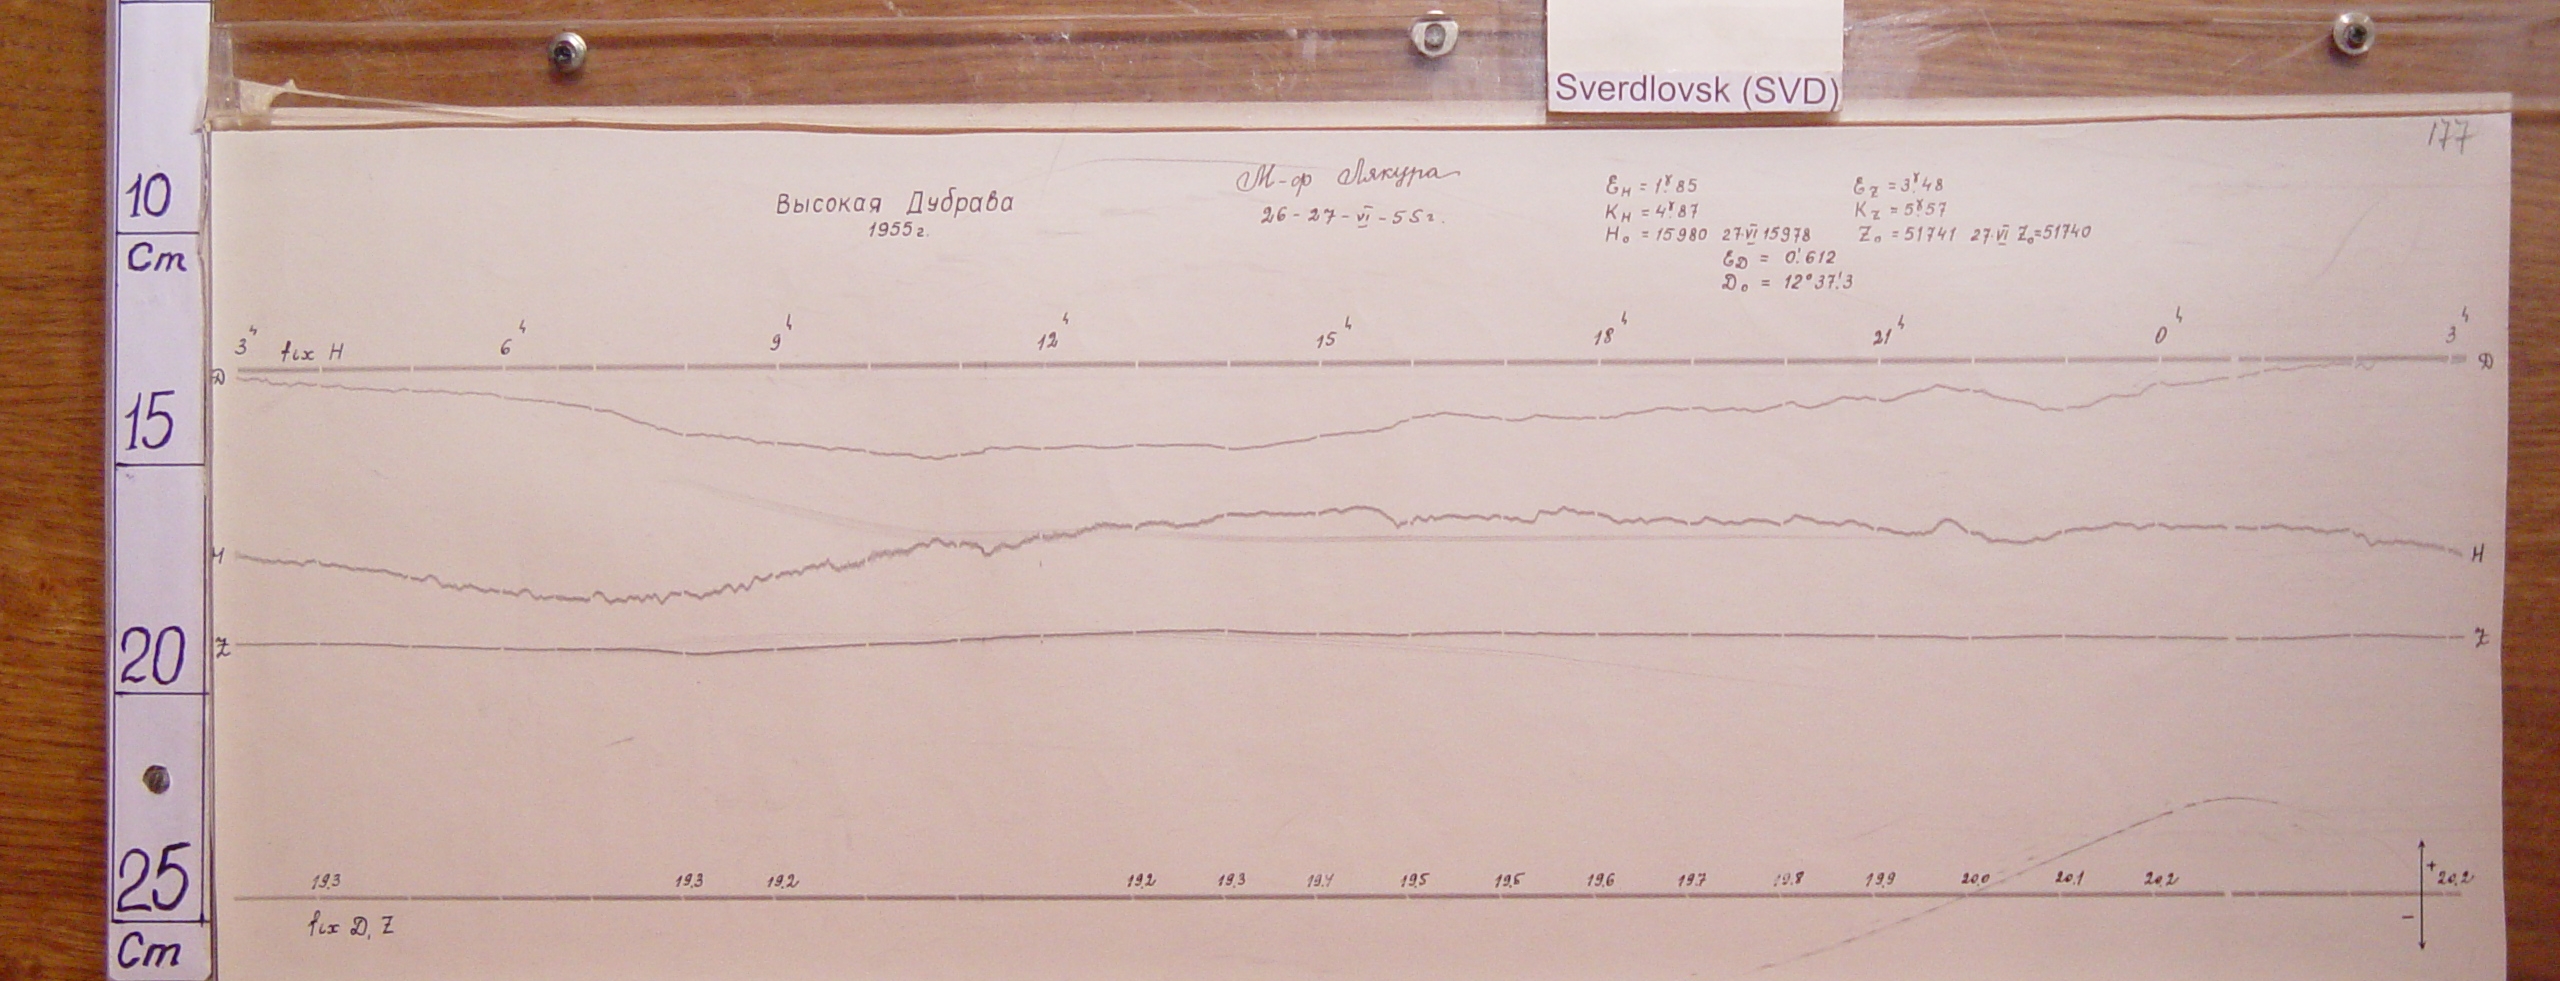 Sverdlovsk (SVD)
177
10
Cm
15
20
25
Cm
Высокая Дубрава
1955г.
М-ф Лякура
26-27-VI-55г.
εH = 1.ˠ85
KH = 4.ˠ87
H₀ = 15980 27.VI 15978
εZ = 3.ˠ48
KZ = 5.ˠ57
Z₀ = 51741 27.VI Z₀=51740
εD = 0.'612
D₀ = 12°37.'3
3ʰ fix H 6ʰ 9ʰ 12ʰ 15ʰ 18ʰ 21ʰ 0ʰ 3ʰ
D D
H H
Z Z
19.3 19.3 19.2 19.2 19.3 19.4 19.5 19.5 19.6 19.7 19.8 19.9 20.0 20.1 20.2 20.2
+
−
fix D, Z